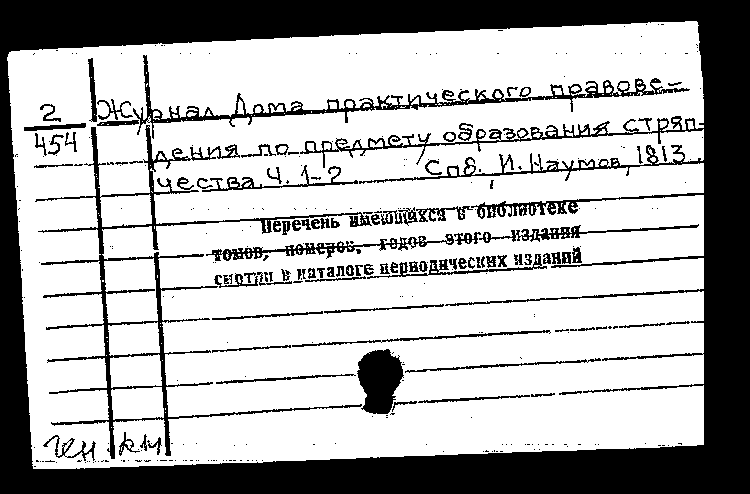 2
454
Журнал Дома практического правове-
дения по предмету образования стряп-
чества. Ч. 1-2 Спб. И. Наумов, 1813.
Перечень имеющихся в библиотеке
томов, номеров, годов этого издания
смотри в каталоге периодических изданий